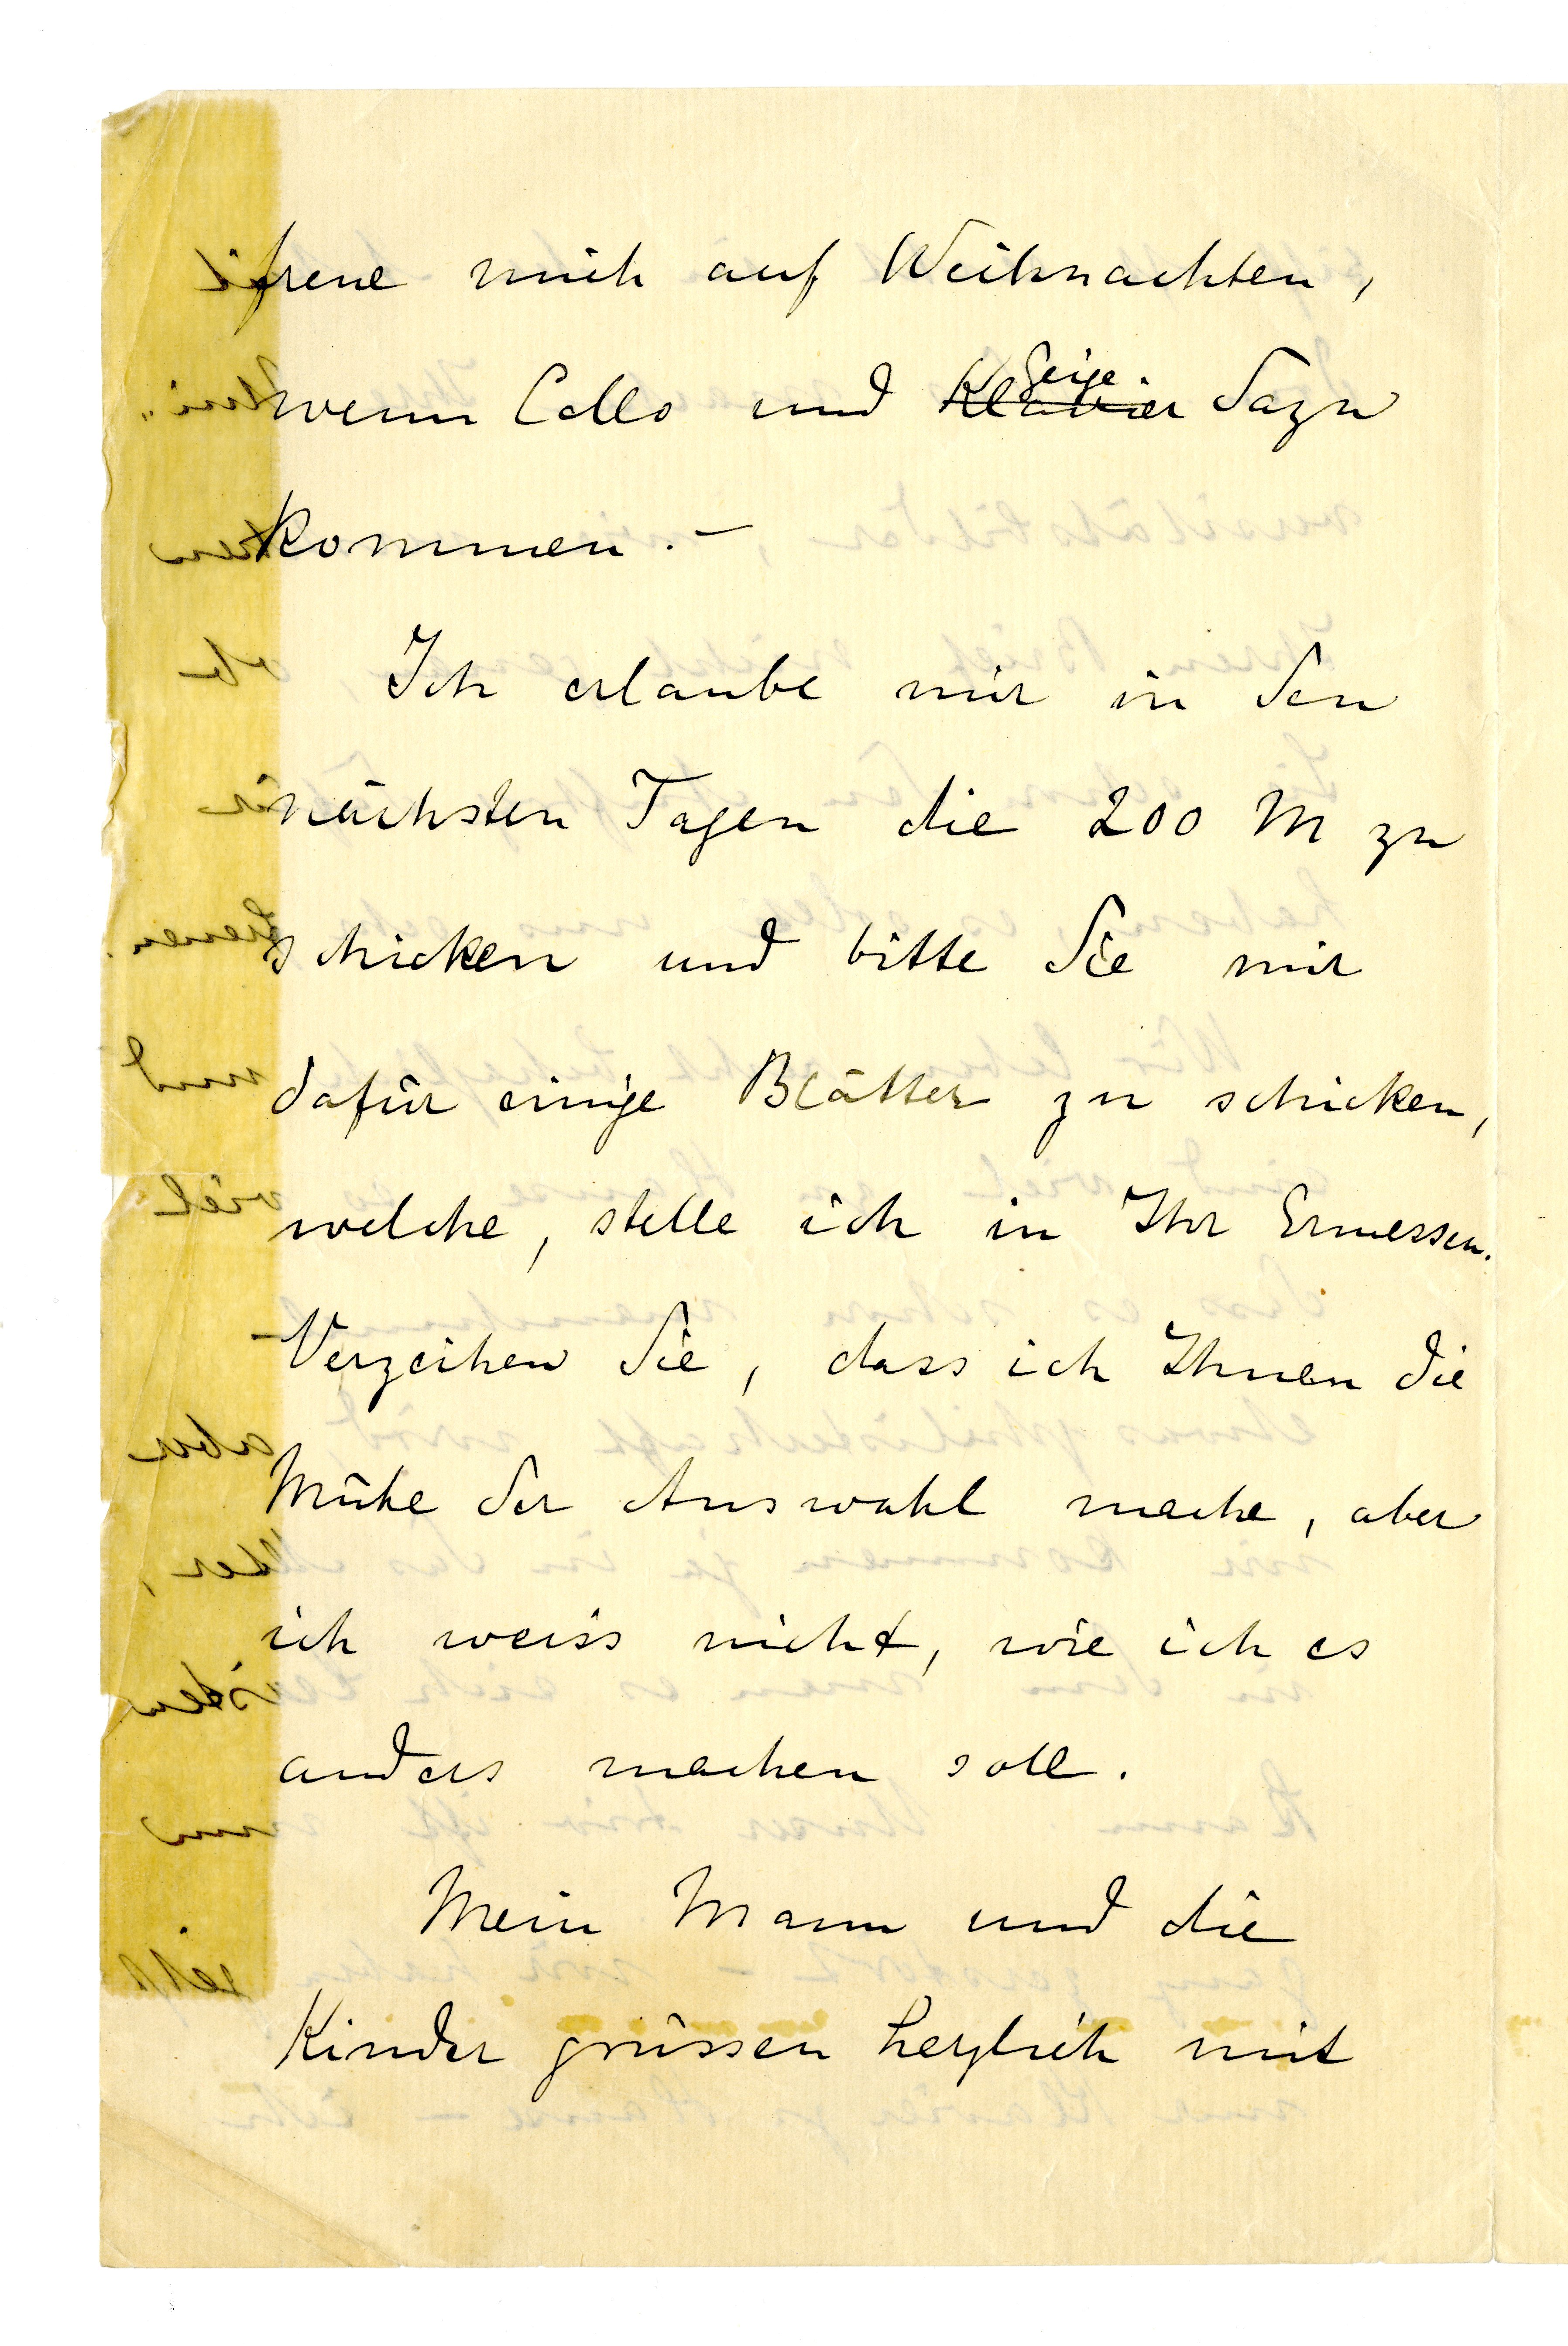 freue mich auf Weihnachten,
wenn Cello und Klavier Geige dazu
kommen. –
Ich erlaube mir in den
nächsten Tagen die 200 M zu
schicken und bitte Sie mir
dafür einige Blätter zu schicken,
welche, stelle ich in Ihr Ermessen.
Verzeihen Sie, dass ich Ihnen die
Mühe der Auswahl mache, aber
ich weiss nicht, wie ich es
anders machen soll.
Mein Mann und die
Kinder grüssen herzlich mit